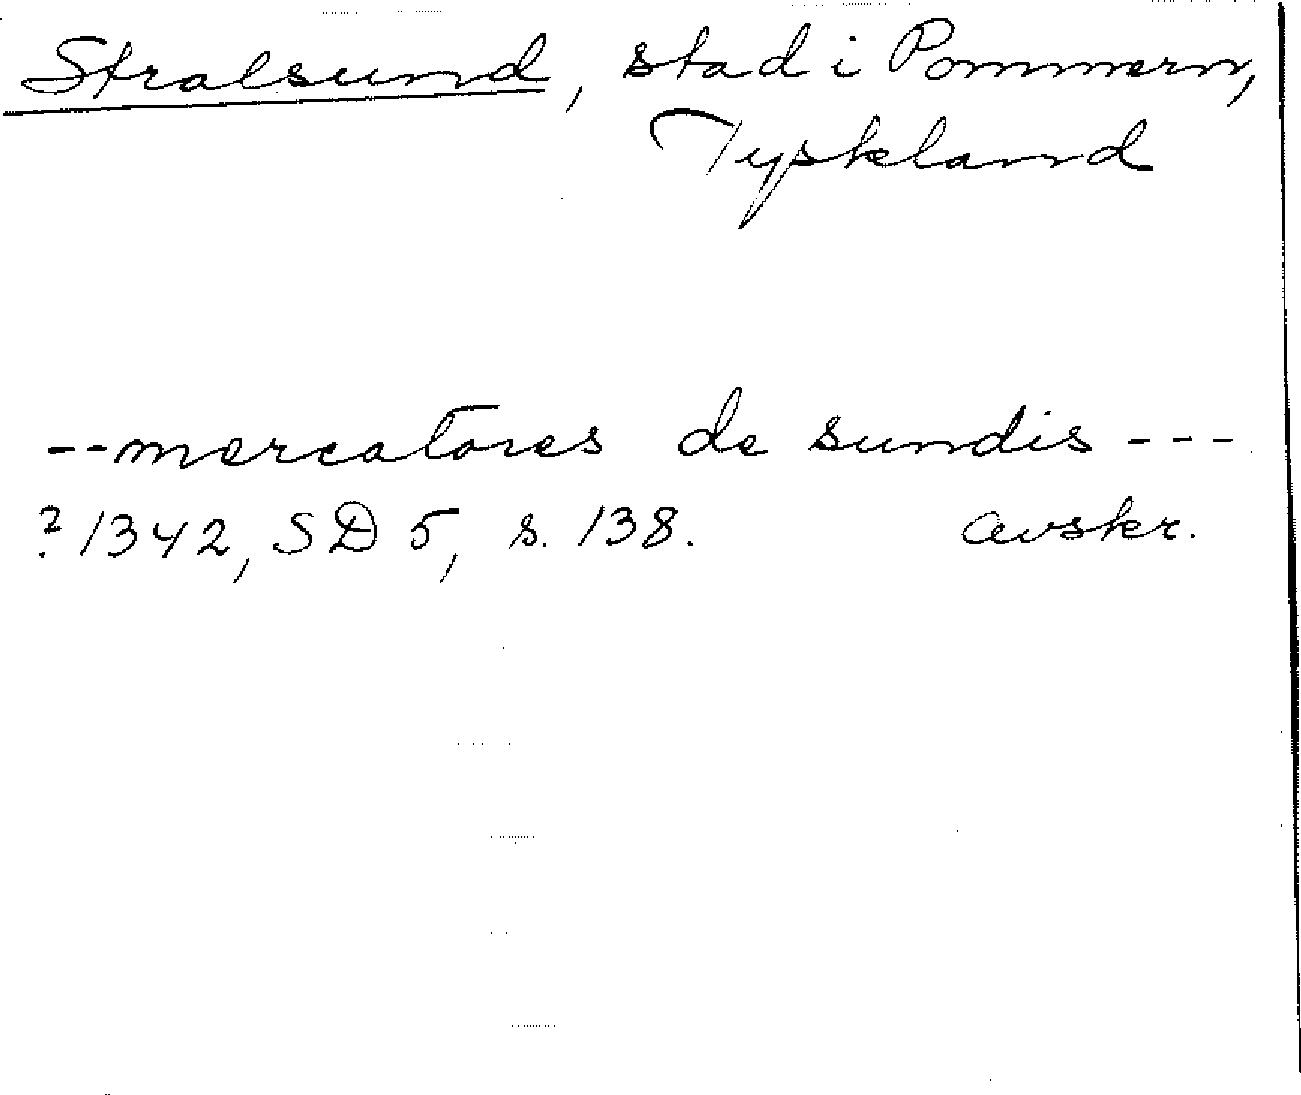 Stralsund, stad i Pommern,
Tyskland
--mercatores de sundis---
? 1342, SD 5, s. 138. avskr.